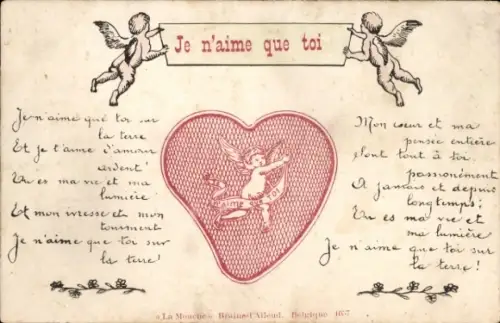 Je n'aime que toi
Je n'aime que toi sur
la terre
Et je t'aime d'amour
ardent!
Tu es ma vie et ma
lumière
Et mon ivresse et mon
tourment
Je n'aime que toi sur
la terre!
J'AIME TOI
Mon cœur et ma
pensée entière
Sont tout à toi
passionément
A jamais et depuis
longtemps;
Tu es ma vie et
ma lumière
Je n'aime que toi sur
la terre!
«La Mouche» Braine-l'Alleud. Belgique